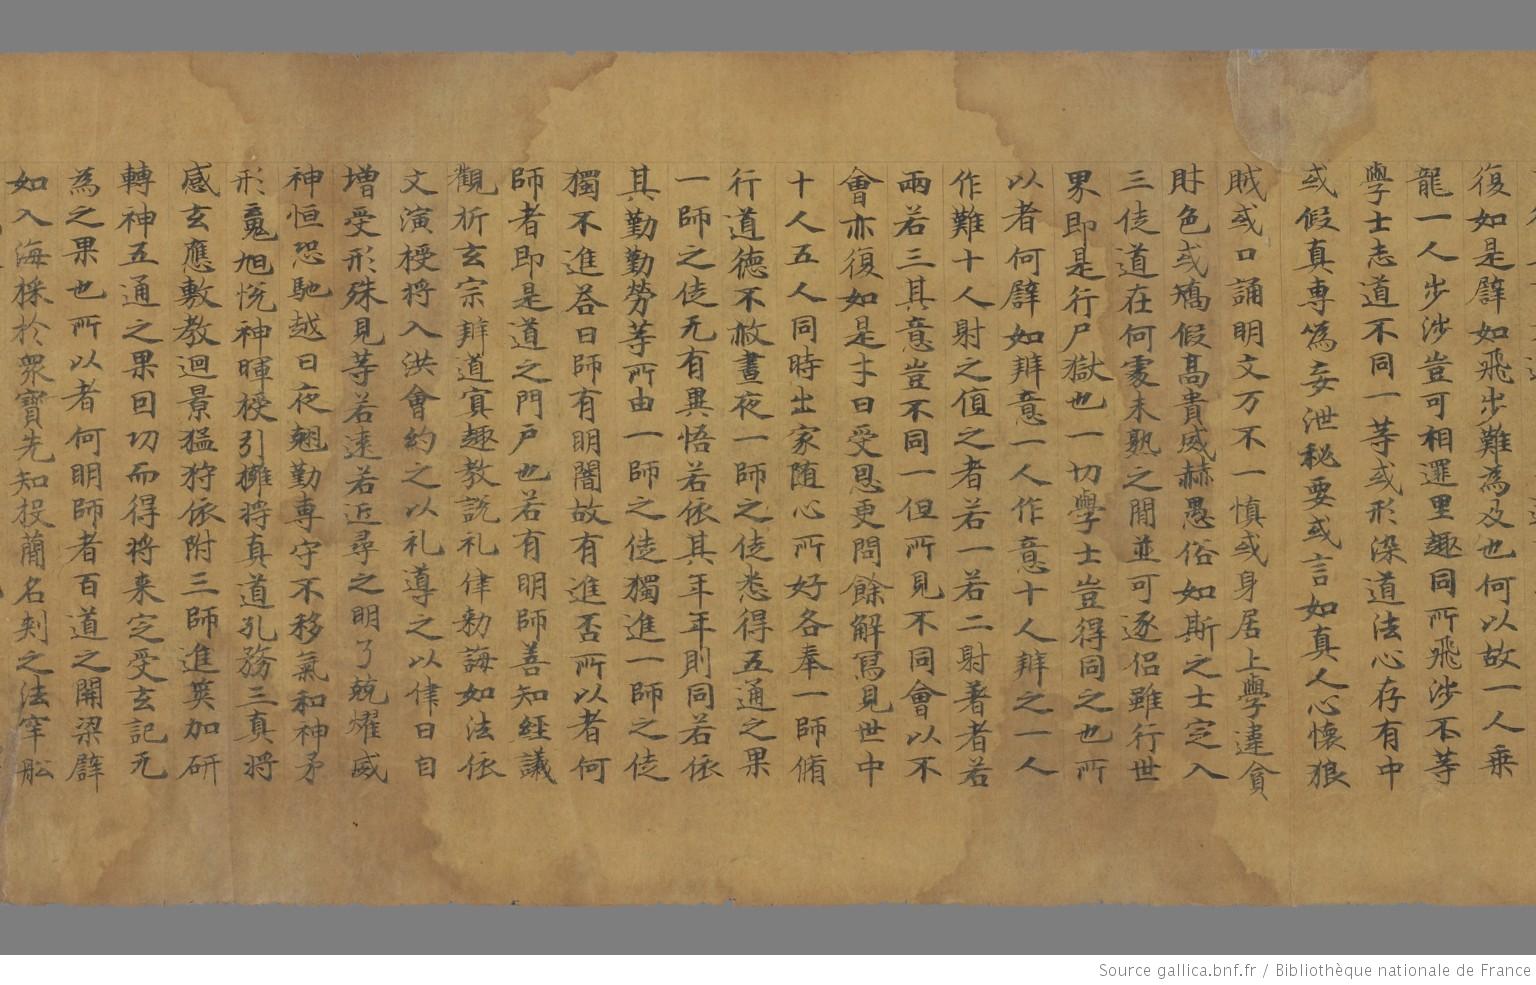 復如是譬如飛步難為及也何以故一人乗
龍一人步涉豈可相遝里趣同所飛涉不等
學士志道不同一等或形染道法心存有中
或假真專為妄泄秘要或言如真人心懷狼
賊或口誦明文万不一慎或身居上學違貪
財色或矯假高貴威赫愚俗如斯之士㝎入
三徒道在何䖏未熟之間並可逐侣雖行世
界即是行尸獄也一切學士豈得同之也所
以者何譬如辯意一人作意十人辯之一人
作難十人射之值之者若一若二射著者若
兩若三其意豈不同一但所見不同會以不
會亦復如是王曰受恩更問餘解寫見世中
十人五人同時出家随心所好各奉一師脩
行道德不敢晝夜一師之徒悉得五通之果
一師之徒无有異悟若依其年年則同若依
其勤勤勞等所由一師之徒獨進一師之徒
獨不進荅曰師有明闇故有進否所以者何
師者即是道之門户也若有明師善知經議
觀析玄宗辯道㝠趣教説礼律勑誨如法依
文演授将入洪會約之以礼導之以律日自
增受形殊見等若逺若近尋之明了兢燿威
神恒恐馳越日夜翹勤専守不移氣和神矛
形䰟旭恱神暉授引擁将真道孔務三真将
感玄應敷教迴景猛狩依附三師進䇿加研
轉神五通之果回功而得将来㝎受玄記无
為之果也所以者何明師者百道之開梁譬
如入海採於衆寶先知投蘭名刾之法牢舩